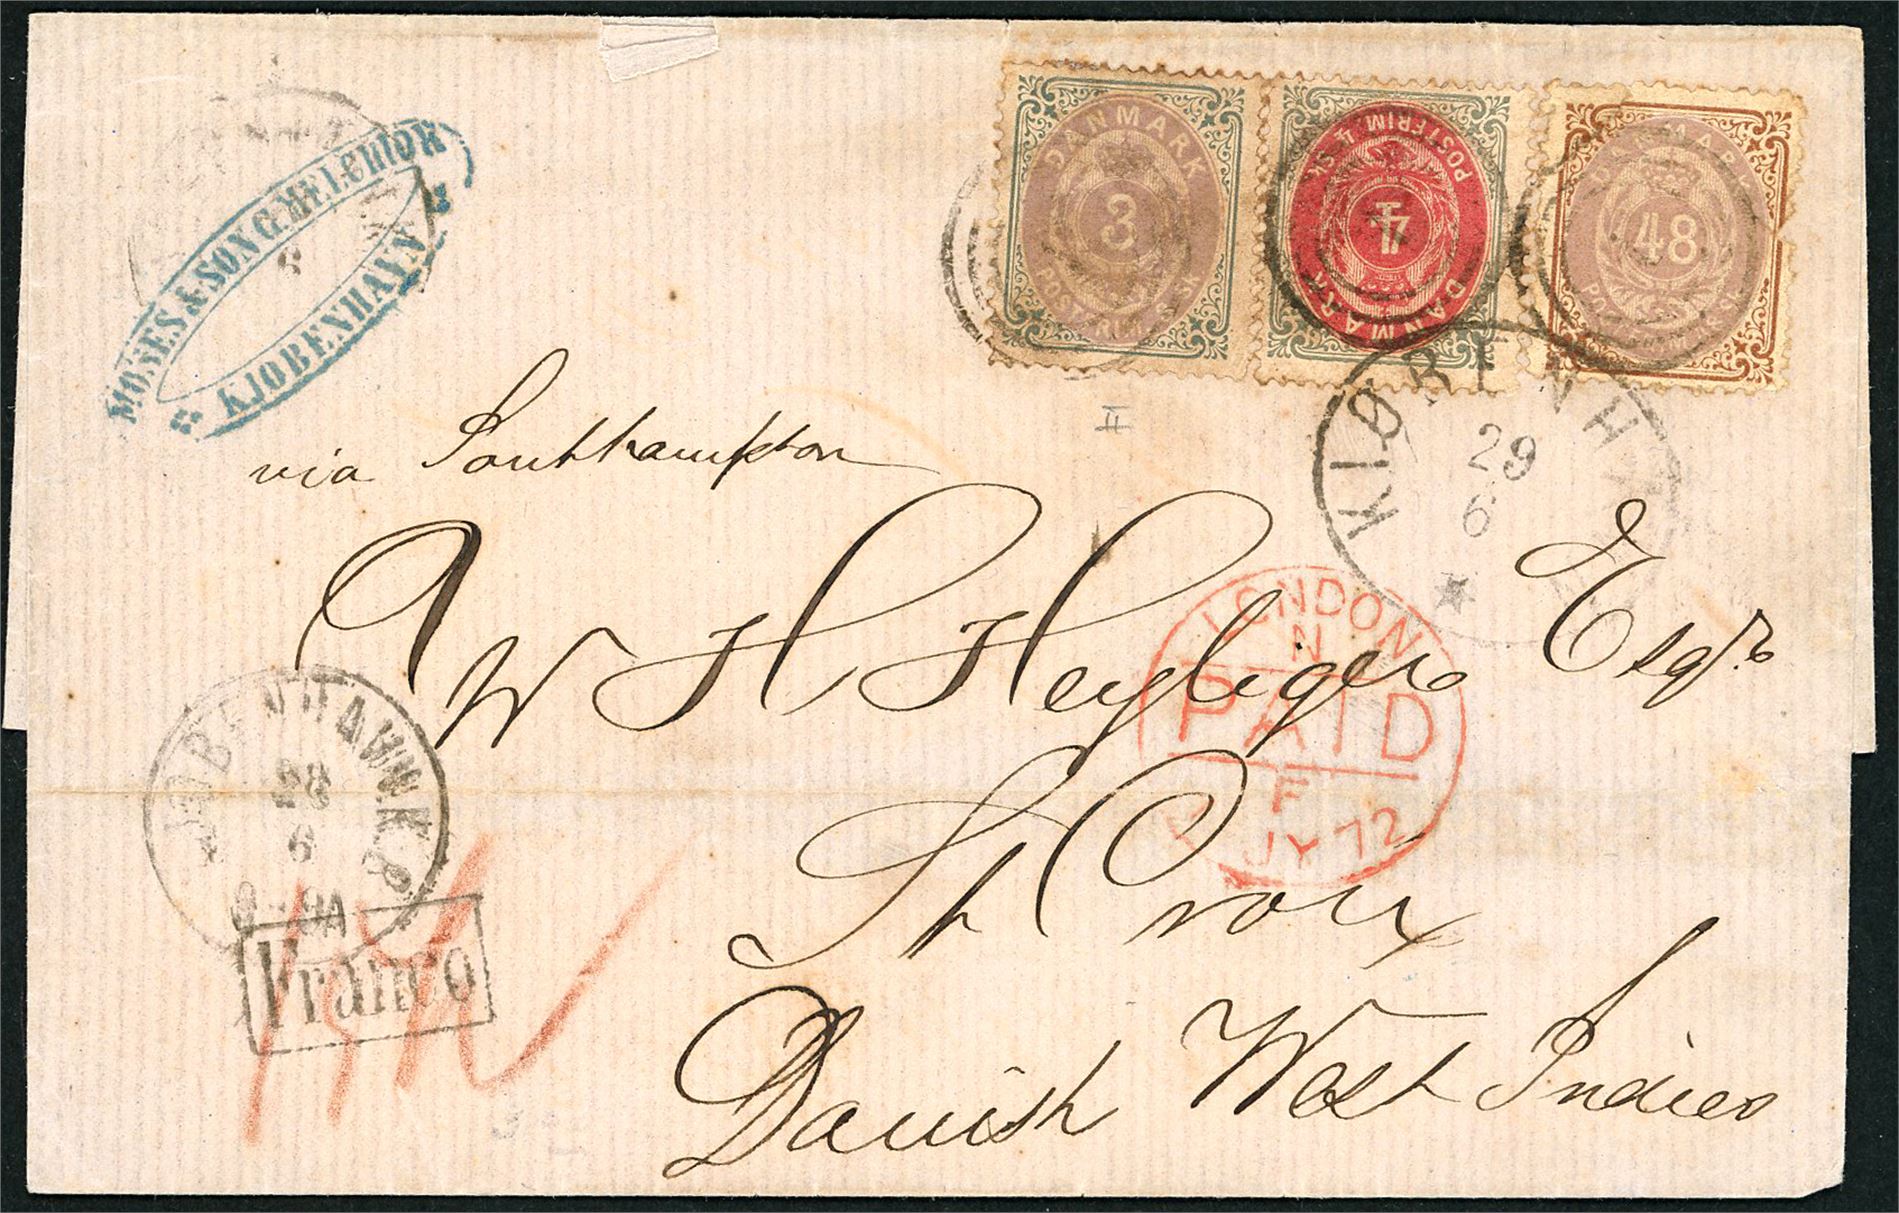 MOSES & SON G. MELCHIOR
KJOBENHAVN
DANMARK
3
POSTFRIM. SK.
DANMARK
4
POSTFRIM. 4 SK.
48
via Southampton
KIØBENH
29
6
W H Heyliger Esqre
LONDON
N
PAID
F
JY 72
St Croix
Danish West Indies
KIØBENHAVN K.B.
28
6
Franco
II